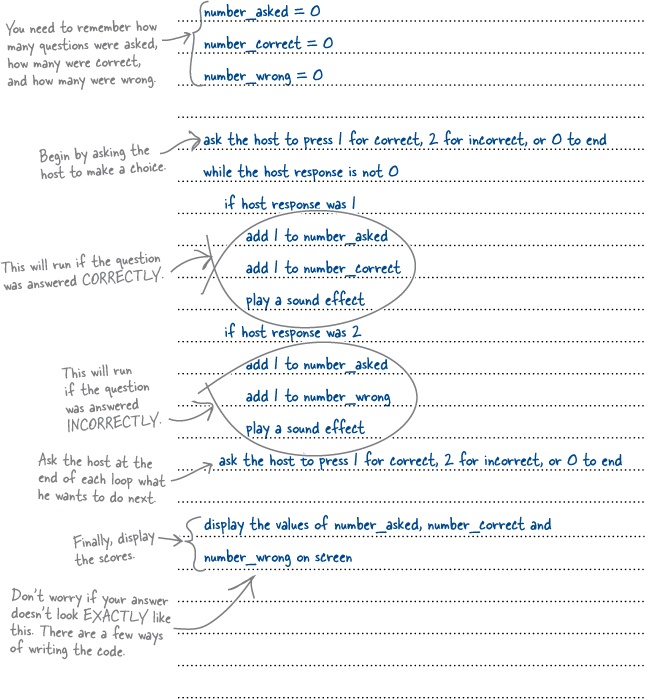 You need to remember how
many questions were asked,
how many were correct,
and how many were wrong.
number_asked = 0
number_correct = 0
number_wrong = 0
Begin by asking the
host to make a choice.
ask the host to press 1 for correct, 2 for incorrect, or 0 to end
while the host response is not 0
if host response was 1
This will run if the question
was answered CORRECTLY.
add 1 to number_asked
add 1 to number_correct
play a sound effect
if host response was 2
This will run
if the question
was answered
INCORRECTLY.
add 1 to number_asked
add 1 to number_wrong
play a sound effect
Ask the host at the
end of each loop what
he wants to do next.
ask the host to press 1 for correct, 2 for incorrect, or 0 to end
Finally, display
the scores.
display the values of number_asked, number_correct and
number_wrong on screen
Don't worry if your answer
doesn't look EXACTLY like
this. There are a few ways
of writing the code.